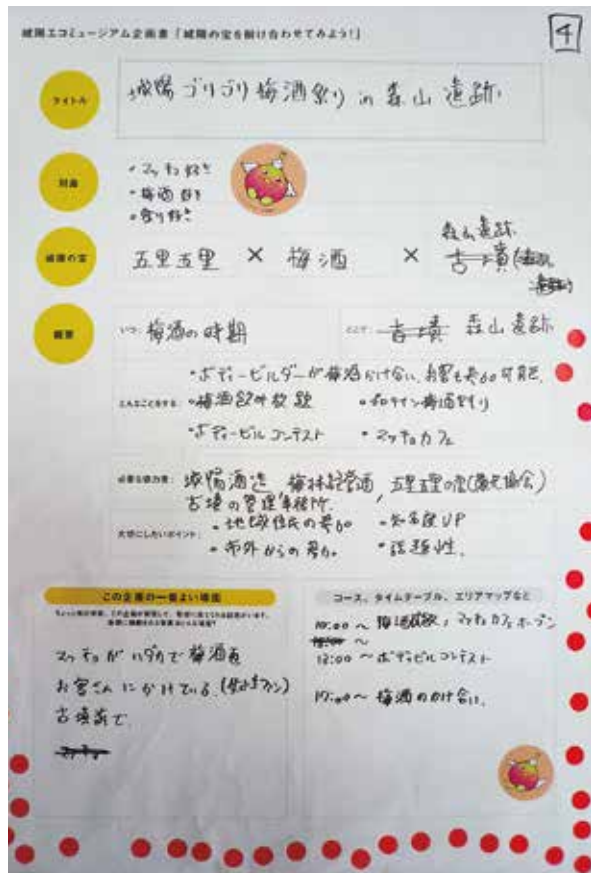 城陽エコミュージアム企画書「城陽の宝を掛け合わせてみよう！」
4
タイトル
城陽ゴリゴリ梅酒祭り in 森山遺跡
対象
・マッチョ好き
・梅酒好き
・祭り好き
城陽の宝
五里五里 × 梅酒 × 古墳
森山遺跡
概要
いつ：梅酒の時期
どこで：古墳 森山遺跡
・ボディービルダーが梅酒かけ合い、お客も参加可能
どんなことをする：・梅酒飲み放題 ・プロテイン梅酒
・ボディービルコンテスト ・マッチョカフェ
必要な協力者：城陽酒造 五里五里の里(観光協会)
古墳の管理事務所、
・地域住民の参加 ・知名度UP
大切にしたいポイント：
・市外からの参加 ・話題性
この企画の一番よい場面
マッチョがハダカで梅酒を
お客さんにかけている
古墳前で
コース、タイムテーブル、エリアマップなど
10:00〜梅酒放題、マッチョカフェオープン
〜
〜ボディビルコンテスト
17:00〜梅酒のかけ合い